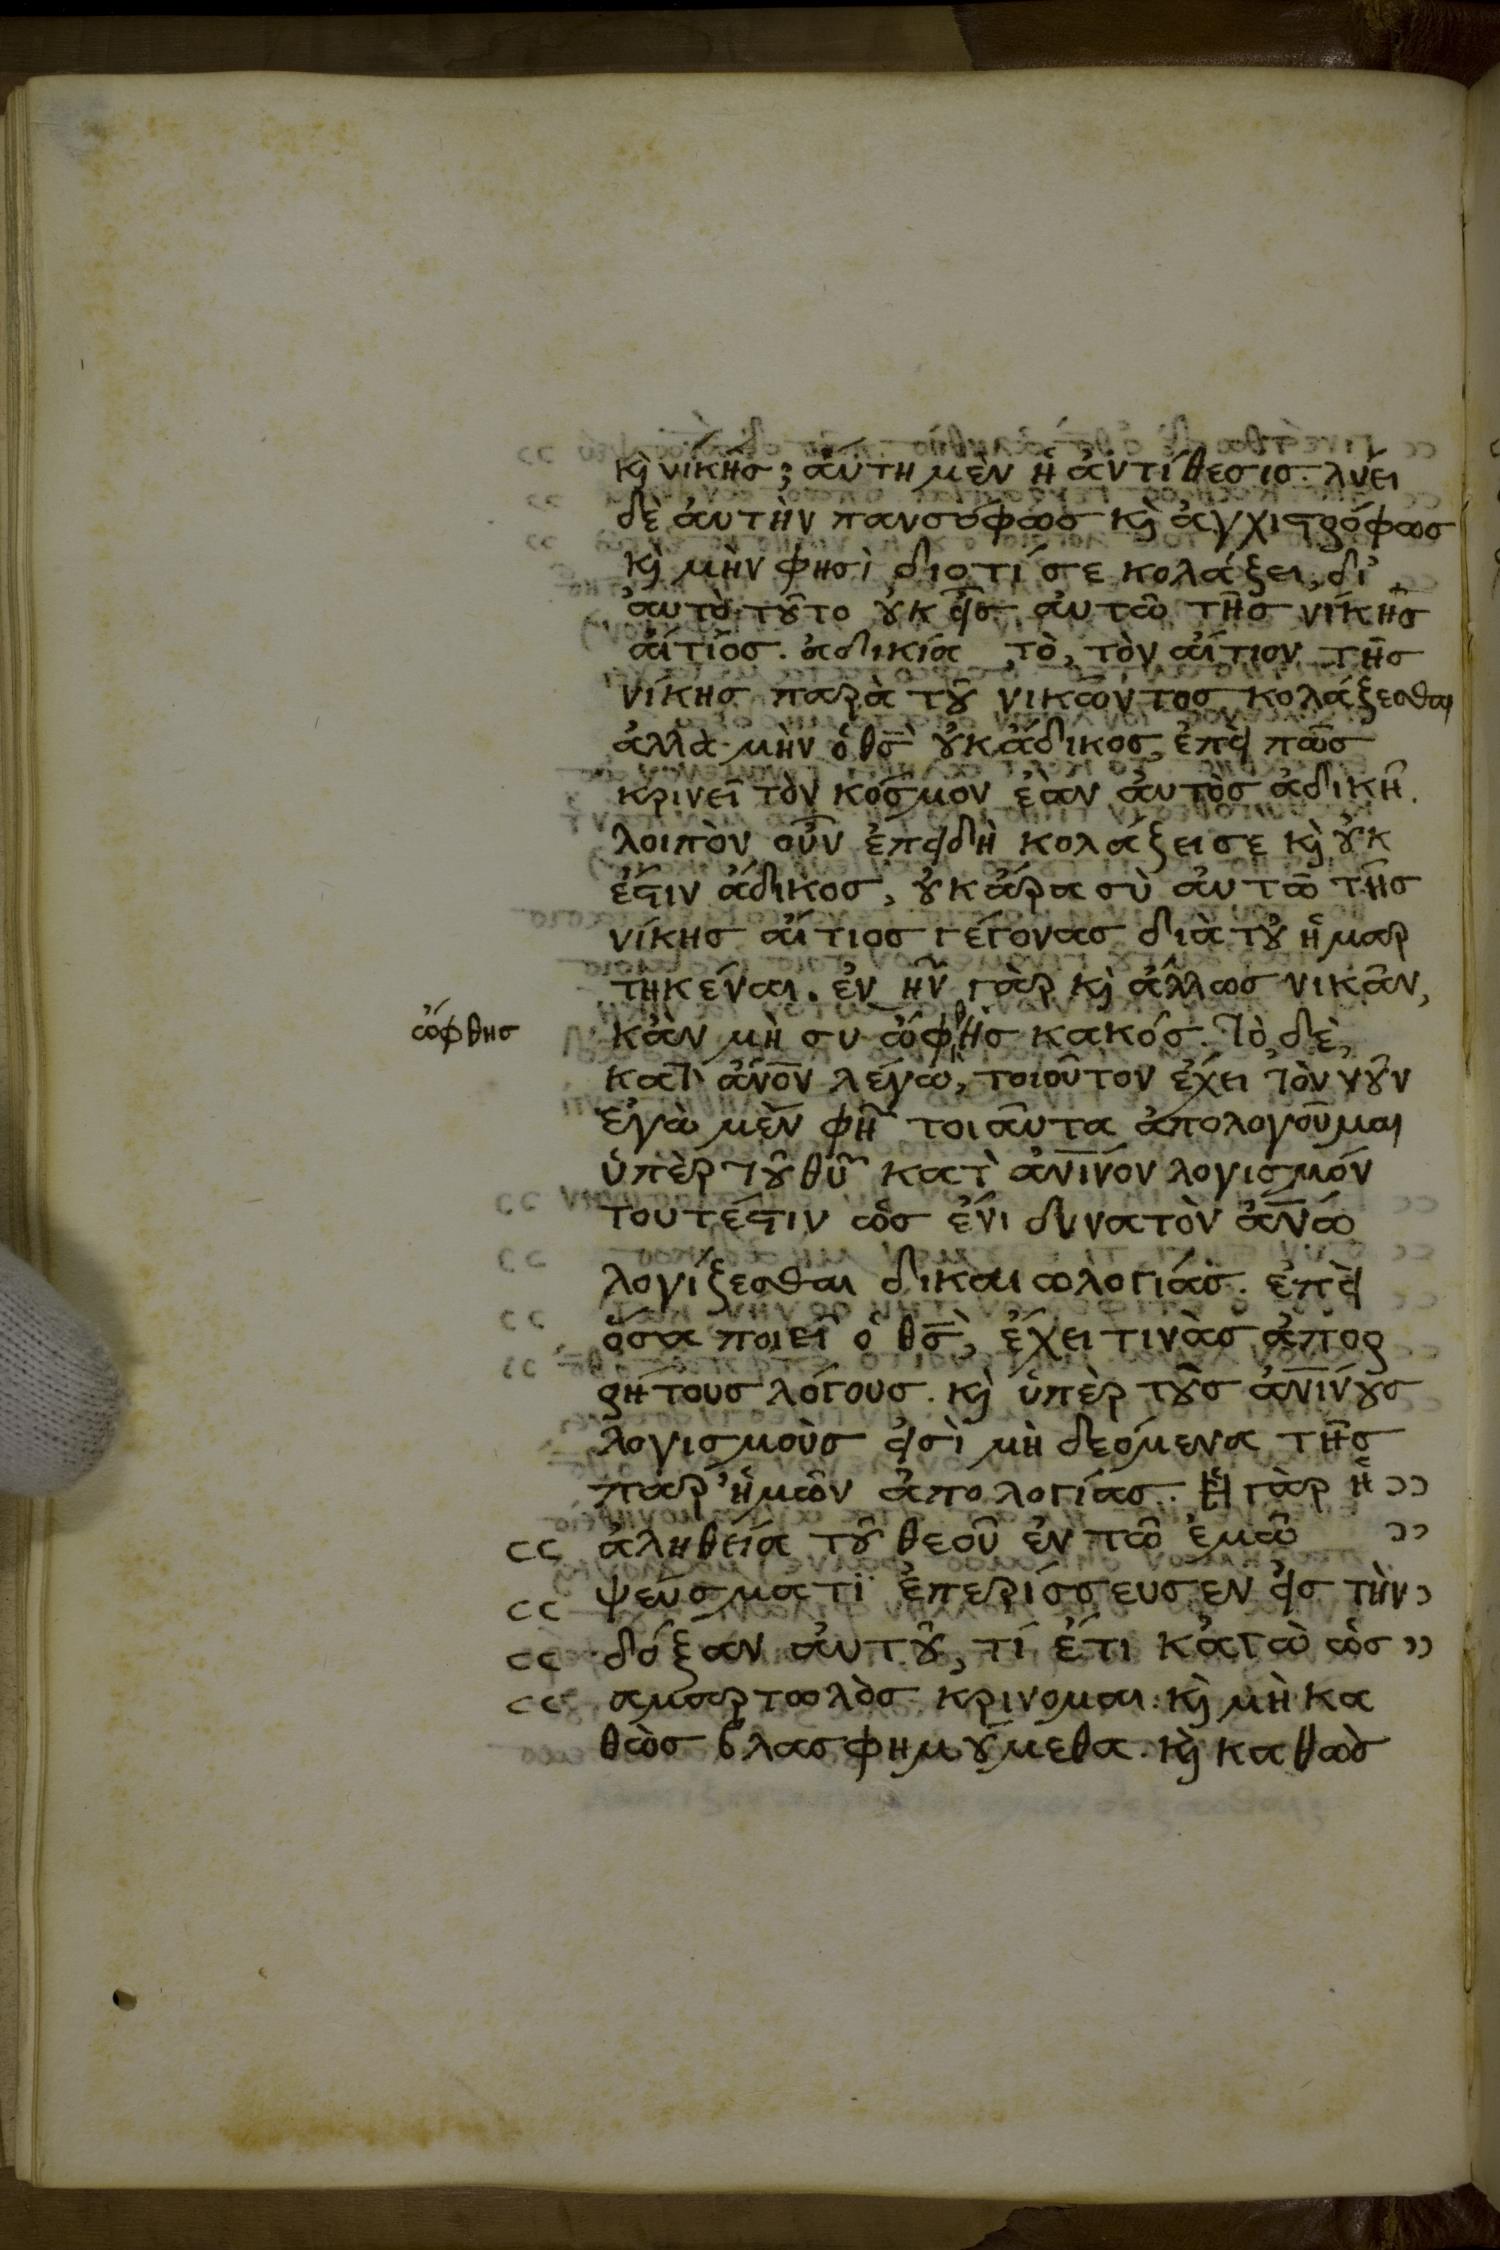 κὶ νίκης; αὕτη μὲν ἡ ἀντίθεσις. λύει
δὲ ἀυτὴν πανσόφως κὶ ἀγχιστρόφως
κὶ μὴν φησὶ διοτί σε κολάζει, δι'
ἀυτὸ τοῦτο οὐκ εἶς ἀυτῶ τῆς νίκης
αἴτιος. ἀδικία τὸ, τὸν αἴτιον τῆς
νίκης παρὰ τοῦ νικῶντος κολάζεσθαι
ἀλλὰ μὴν ὁ θς οὐκ ἄδικος, ἐπεὶ πῶς
κρινεῖ τὸν κόσμον ἐὰν ἀυτὸς ἀδικῆ.
λοιπὸν οὖν ἐπειδὴ κολάζει σε κὶ οὐκ
ἔστιν ἄδικος, οὐκ ἄρα σὺ ἀυτῶ τῆς
νίκης αἴτιος γέγονας διὰ τοῦ ἡμαρ
τηκέναι. ἐν ἦν γὰρ κὶ ἄλλως νικᾶν,
ὤφθης
κἂν μὴ συ ὤφθης κακός. Τὸ δὲ,
κατὰ ἄνον λέγω, τοιοῦτον ἔχει τὸν νοῦν
ἐγὼ μὲν φη τοιαῦτα ἀπολογοῦμαι
ὑπὲρ τοῦ θυ κατὰ ἀνινον λογισμόν
τουτέστιν ὡς ἔνι δυνατὸν ἀνω
λογίζεσθαι δικαιωλογίας. ἐπεὶ
ὅσα ποιεῖ ὁ θς, ἔχει τινὰς ἀπορ
ρήτους λόγους. κὶ ὑπὲρ τοὺς ἀνινους
λογισμοὺς εἰσὶ μὴ δεόμενα τῆς
παρ' ἡμῶν ἀπολογίας. Εἰ γὰρ ἡ
ἀλήθεια τοῦ θεοῦ ἐν τῶ ἐμῶ
ψεύσματι ἐπερίσσευσεν εἰς τὴν
δόξαν ἀυτοῦ, τί ἔτι κἀγὼ ὡς
αμαρτωλὸς κρίνομαι. κὶ μὴ κα
θὼς βλασφημούμεθα. κὶ καθὼς